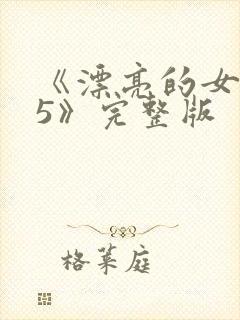 《漂亮的女
5》完整版
格莱庭